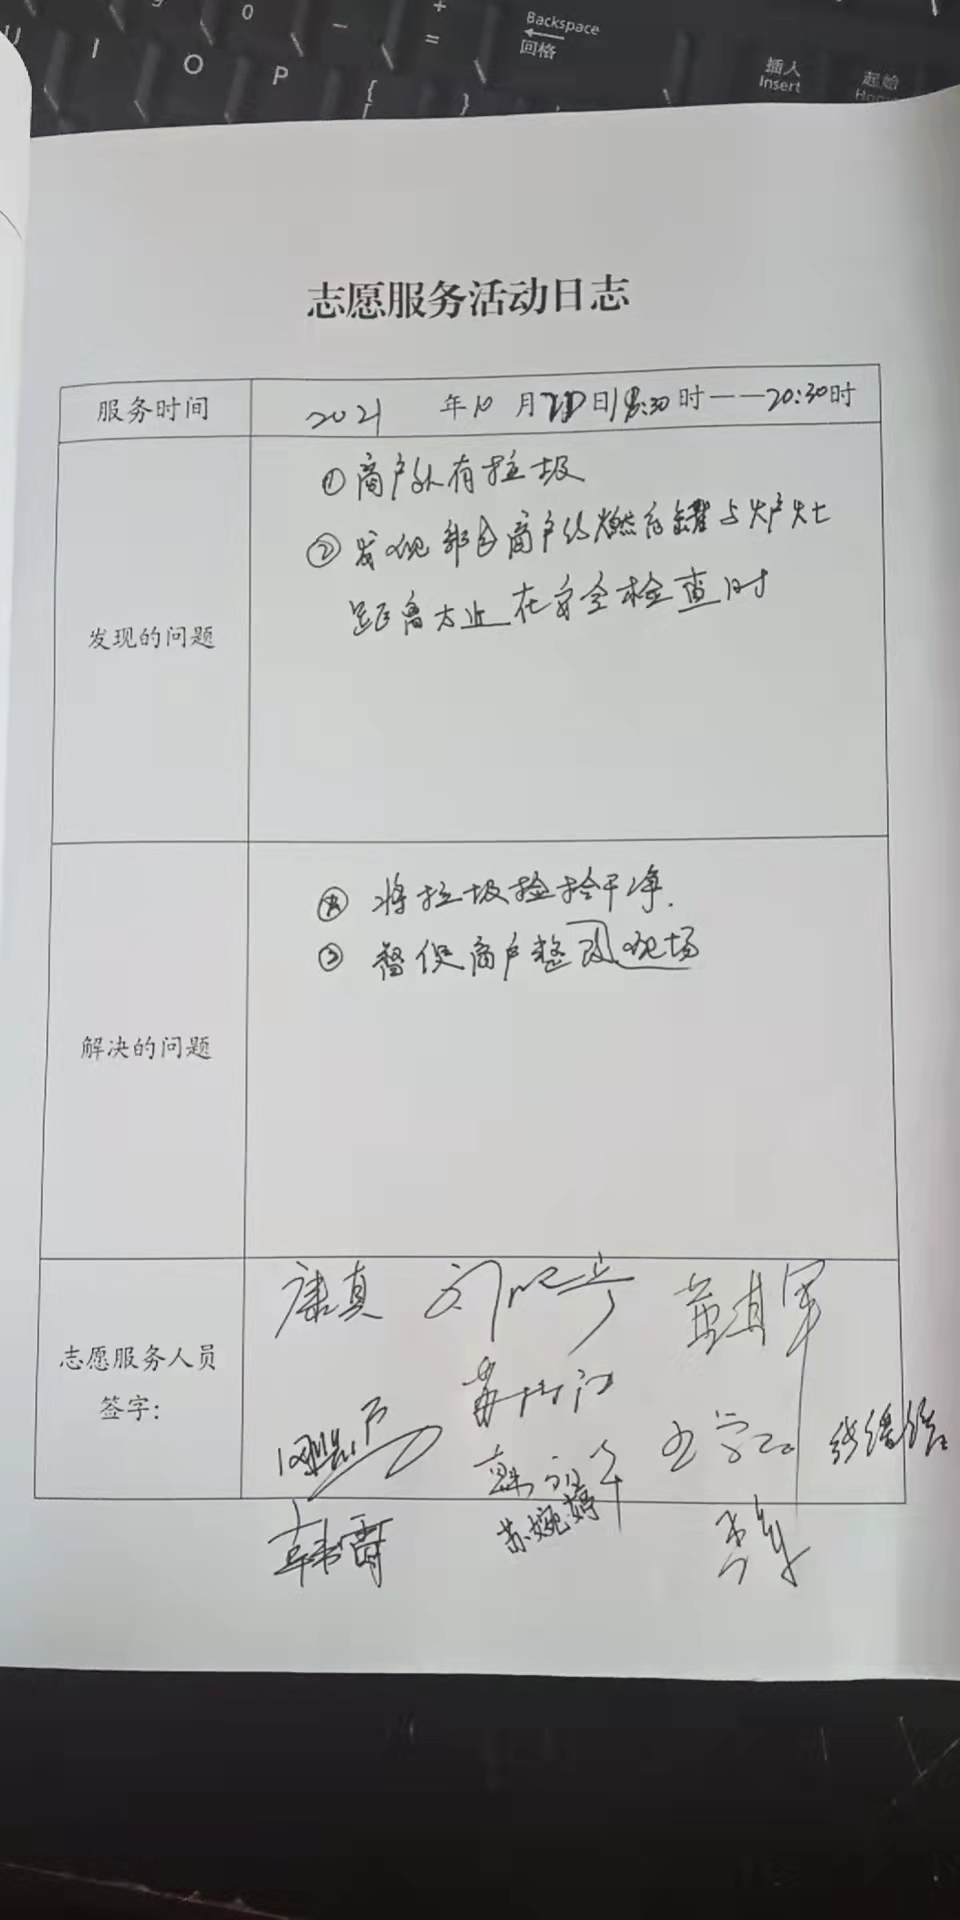 U I O P 0 - + = { [ } Backspace 回格 插入 Insert 起始
志愿服务活动日志
服务时间 2021 年10月 日18:30时——20:30时
①商户外有垃圾
②发现部分商户的燃气罐与炉灶
距离太近 在安全检查时
发现的问题
① 将垃圾捡拾干净.
② 督促商户整改现场
解决的问题
康真
志愿服务人员
签字:
苏婉婷
韩雷